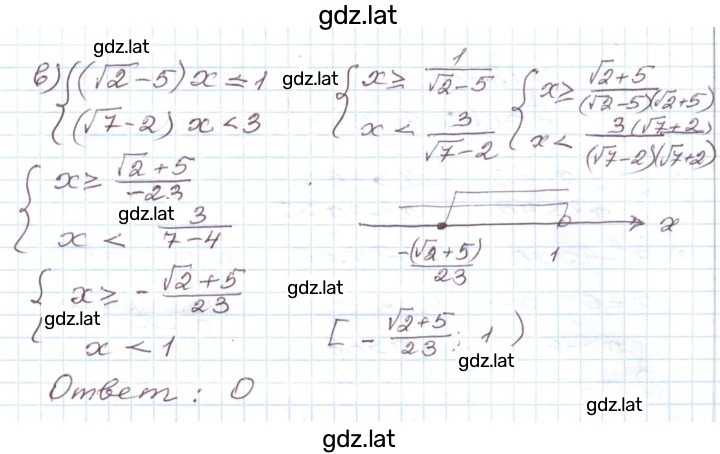 gdz.lat
gdz.lat
в) { (√2 - 5) x ≤ 1
(√7 - 2) x < 3
gdz.lat
{ x ≥ 1/(√2 - 5)
x < 3/(√7 - 2)
{ x ≥ (√2 + 5)/((√2 - 5)(√2 + 5))
x < 3(√7 + 2)/((√7 - 2)(√7 + 2))
{ x ≥ (√2 + 5)/(-23)
gdz.lat
x < 3/(7 - 4)
-(√2 + 5)/23 1 x
{ x ≥ - (√2 + 5)/23
gdz.lat
x < 1
gdz.lat
[ - (√2 + 5)/23 ; 1 )
gdz.lat
Ответ : 0
gdz.lat
gdz.lat